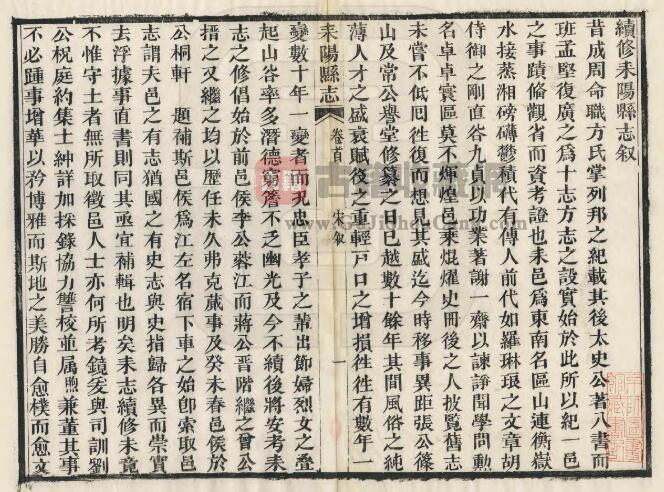 續修耒陽縣志叙
昔成周命職方氏掌列邦之紀載其後太史公著八書而
班孟堅復廣之爲十志方志之設實始於此所以紀一邑
之事蹟備觀省而資考證也耒邑爲東南名區山連衡嶽
水接蒸湘磅礴鬱積代有傳人前代如羅琳琅之文章胡
侍御之剛直谷九貞以功業著謝一齋以諫諍聞學問勳
名卓卓寰區莫不煇煌邑乘焜燿史冊後之人披覧舊志
未嘗不低囘徃復而想見其盛迄今時移事異距張公篠
山及常公譽堂修纂之日已越數十餘年其間風俗之純
薄人才之盛衰賦役之重輕戸口之增損徃徃有數年一
耒陽縣志
卷首
宋叙
一
變數十年一變者而况忠臣孝子之輩出節婦烈女之疊
起山谷率多潛德窮簷不乏幽光及今不續後將安考耒
志之修倡始於前邑侯李公蓉江而蔣公晋階繼之曾公
搢之又繼之均以歴任未久弗克蕆事及癸未春邑侯於
公桐軒　題補斯邑侯爲江左名宿下車之始卽索取邑
志謂夫邑之有志猶國之有史志與史指歸各異而崇實
去浮據事直書則同其亟宜補輯也明矣耒志續修未竟
不惟守土者無所取徵邑人士亦何所考鏡爰與司訓劉
公柷庭約集士紳詳加採錄協力讐校並属煦兼董其事
不必踵事增華以矜博雅而斯地之美勝自愈樸而愈文